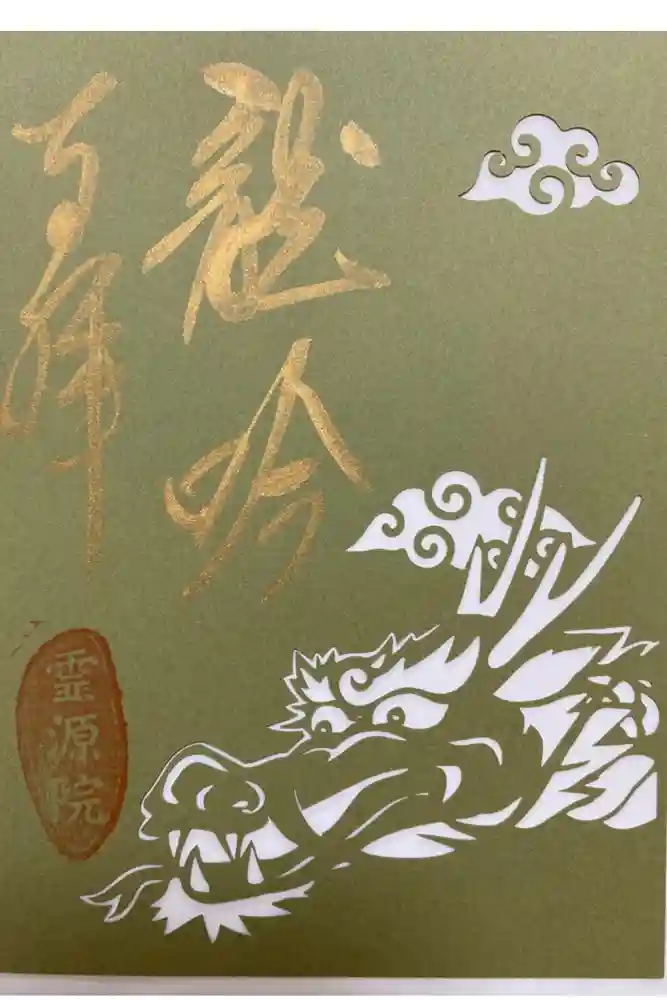 龍吟
奉拝
霊源院